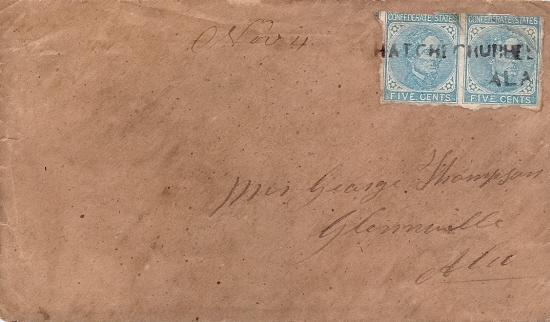 CONFEDERATE STATES CONFEDERATE STATES
Nov 4
HATCHECHUBBEE
ALA
FIVE CENTS FIVE CENTS
Mrs George Thompson
Glennville
Ala